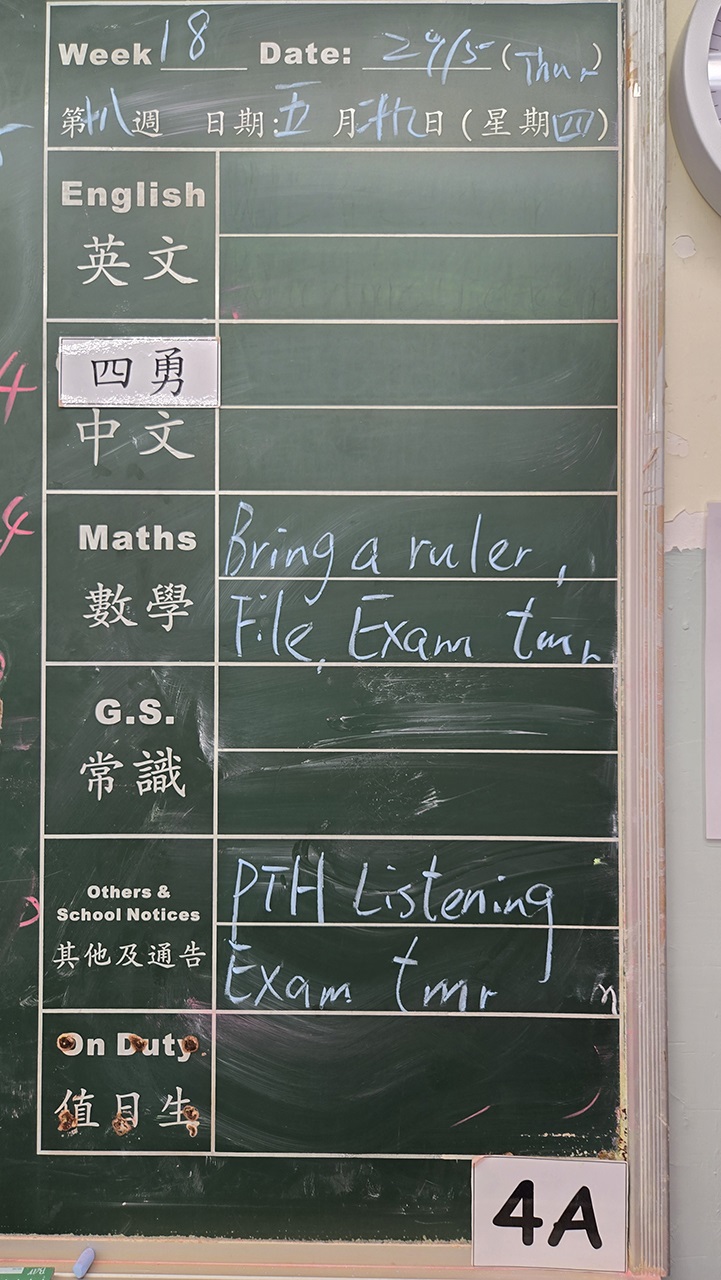 Week 18 Date: 29/5 (Thur)
第十八週 日期:五月廿九日(星期四)
English
英文
四勇
中文
Maths
數學
Bring a ruler,
File, Exam tmr
G.S.
常識
Others &
School Notices
其他及通告
PTH Listening
Exam tmr
On Duty
值日生
4A